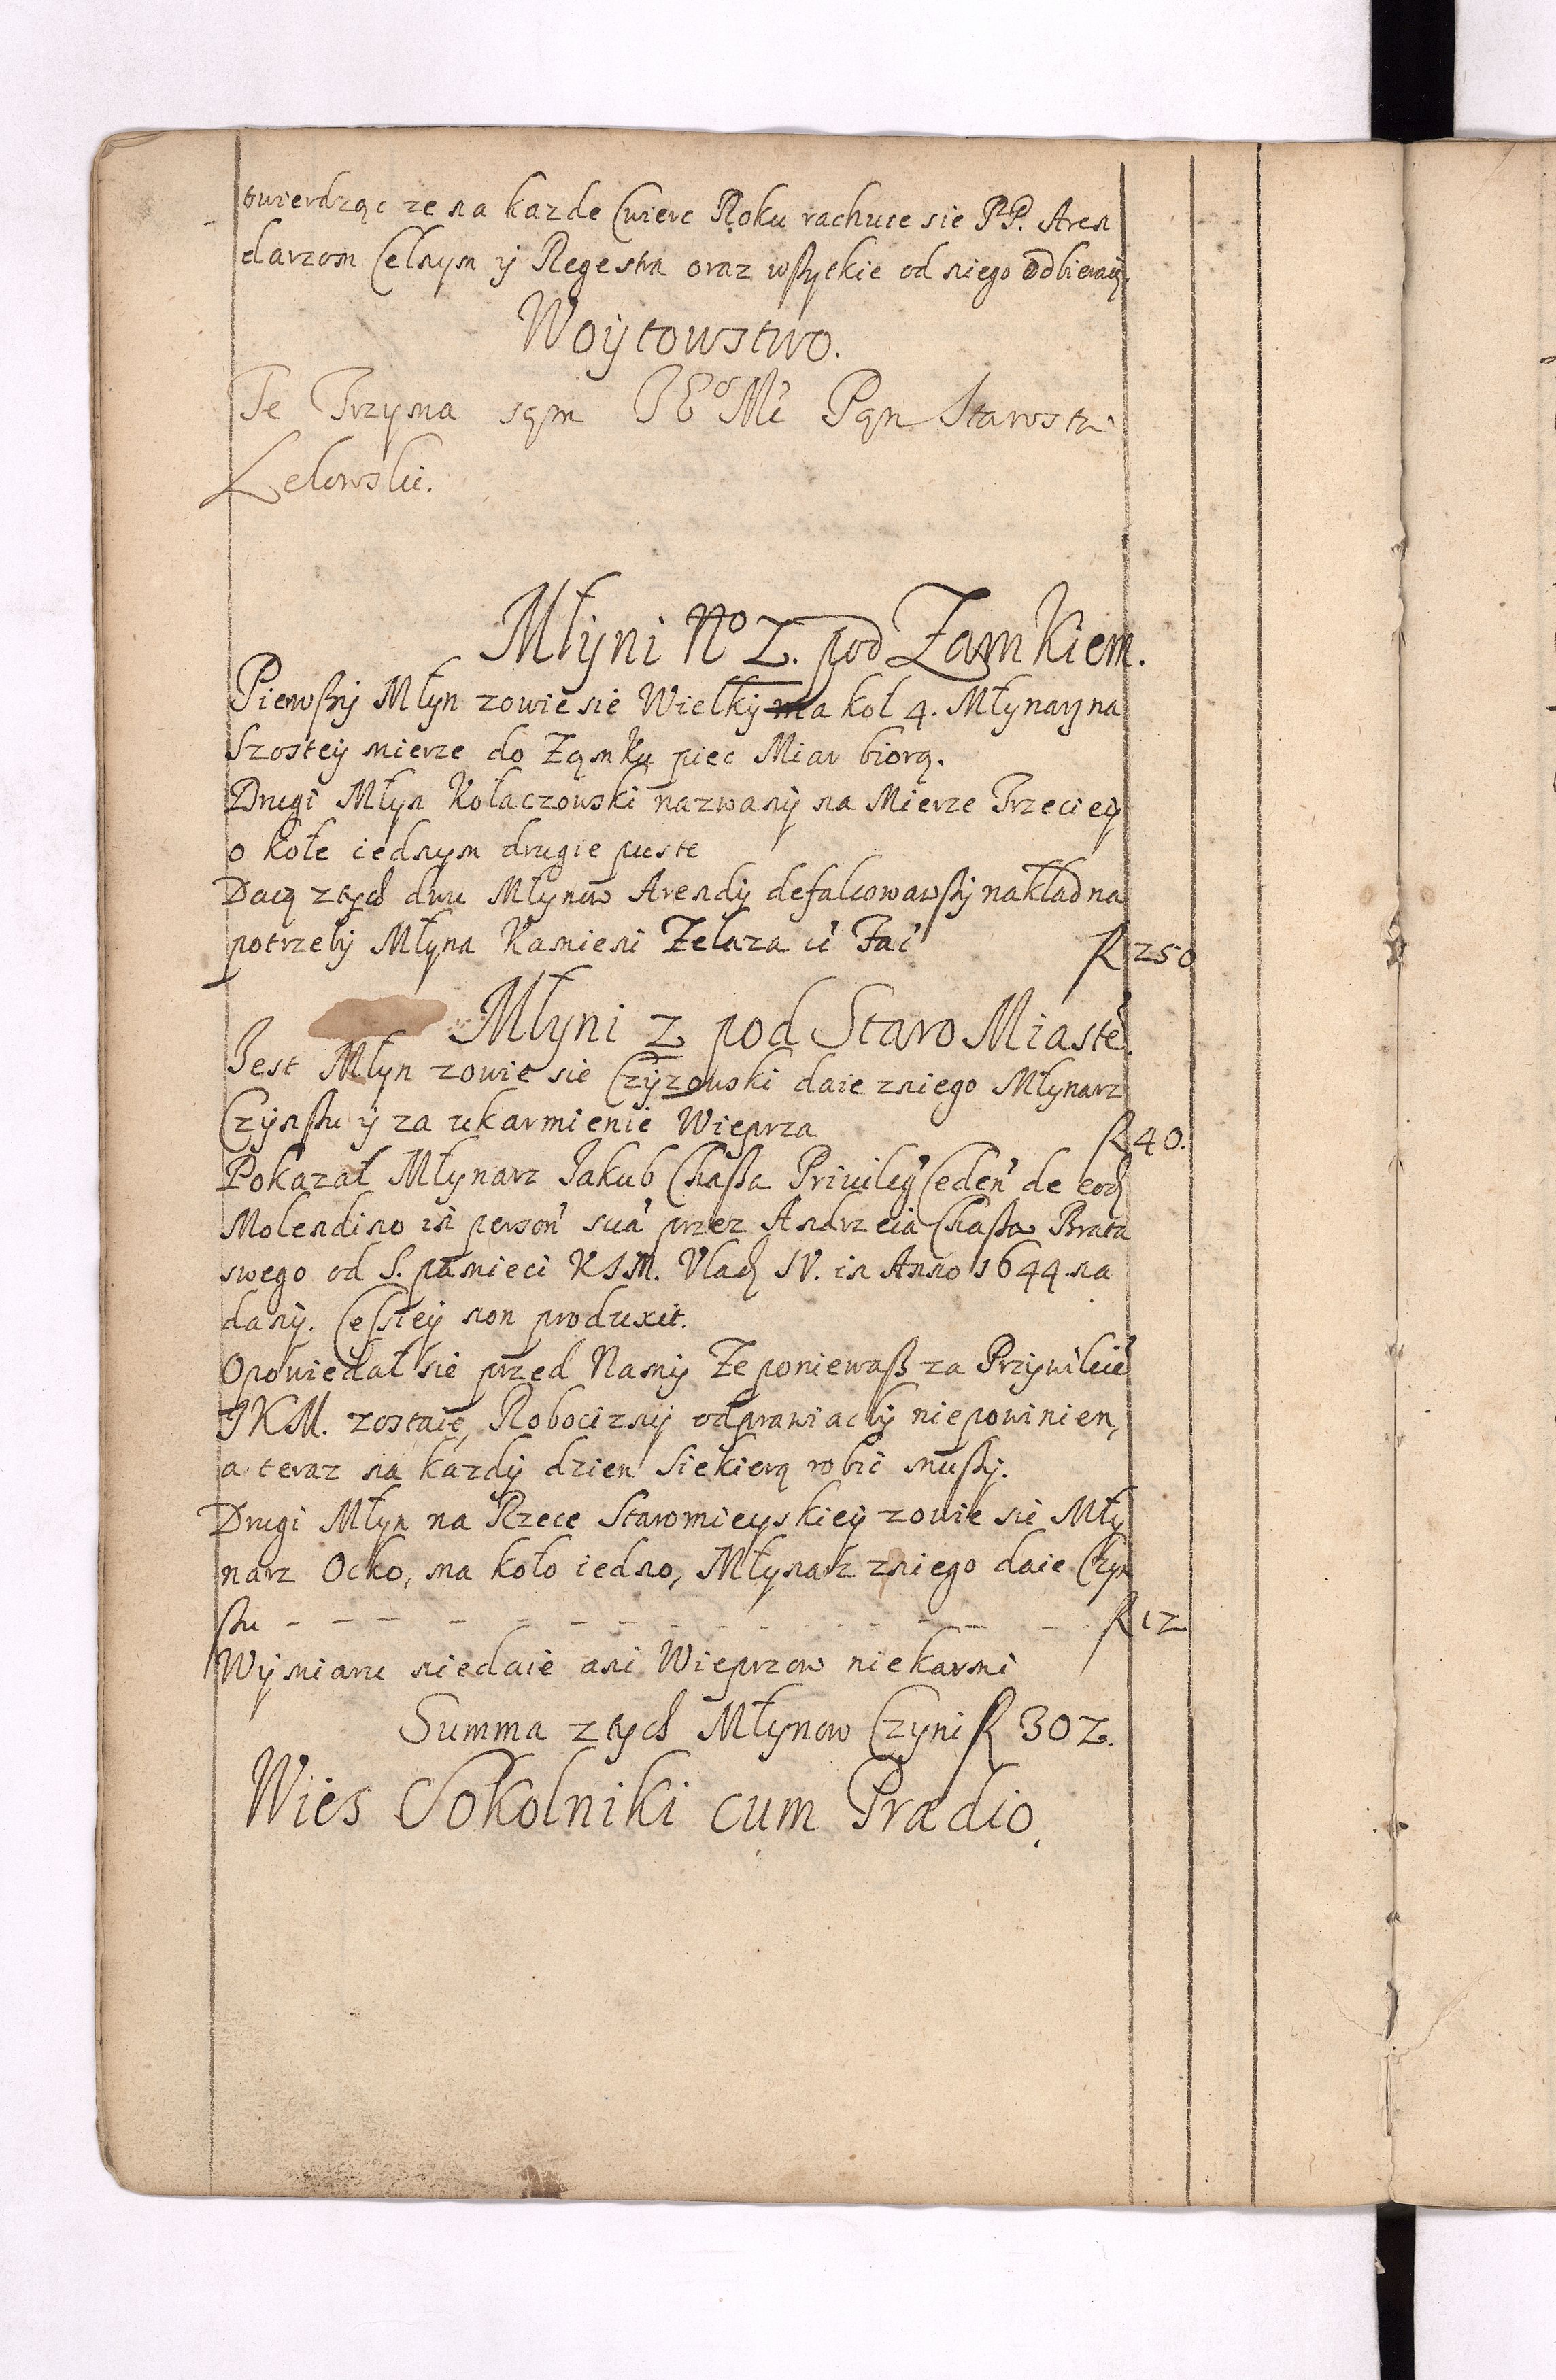 twierdząc ze na kazde Cwierc Roku rachuie sie PP. Aren
darzom Celnym ÿ Regestra oraz wszytkie od niego odbieraią.
Woÿtowstwo.
Te Trzyma sąm JEº Mć Pąn Starosta
Lelowski.
Młÿni Nº 2. pod Zamkiem.
Pierwszÿ Młyn zowie sie Wielkÿ ma koł 4. Młynarz na
Szosteÿ mierze do Ząmku piec Miar biorą.
Drugi Młyn Kołaczowski nazwanÿ na Mierze Trzecieÿ
o kole iednym drugie puste
Daią z tych dwu Młynow Arendÿ defalcowawszÿ nakład na
potrzebÿ Młyna Kamieni Zelaza
fl 250
Młyni 2 pod Staro Miaste.
Jest Młyn zowie sie Czÿzowski daie z niego Młynarz
Czynszu ÿ za ukarmienie Wieprza
fl 40.
Pokazał Młynarz Jakub Chasza Priuileg Ceden de eod
Molendino in person sua przez Andrzeia Chasza Brata
swego od S. pamieci KJM. Vlad IV. in Anno 1644 na
danÿ. Cessieÿ non produxit.
Opowiedał sie przed Namÿ Ze poniewasz za Przÿwileie
JKM. zostaie, Robociznÿ odprawiac bÿ niepowinien,
a teraz na kazdÿ dzien siekierą robic muszÿ.
Drugi Młyn na Rzece Staromieyskieÿ zowie sie Młÿ
narz Ocko, ma koło iedno, Młynarz z niego daie Czyn
szu - - - - - - - - - - - - - -
fl 12
Wÿmiaru niedaie ani Wieprzow niekarmi
Summa z tych Młynow Czyni fl 302.
Wies Sokolniki cum Prædio.